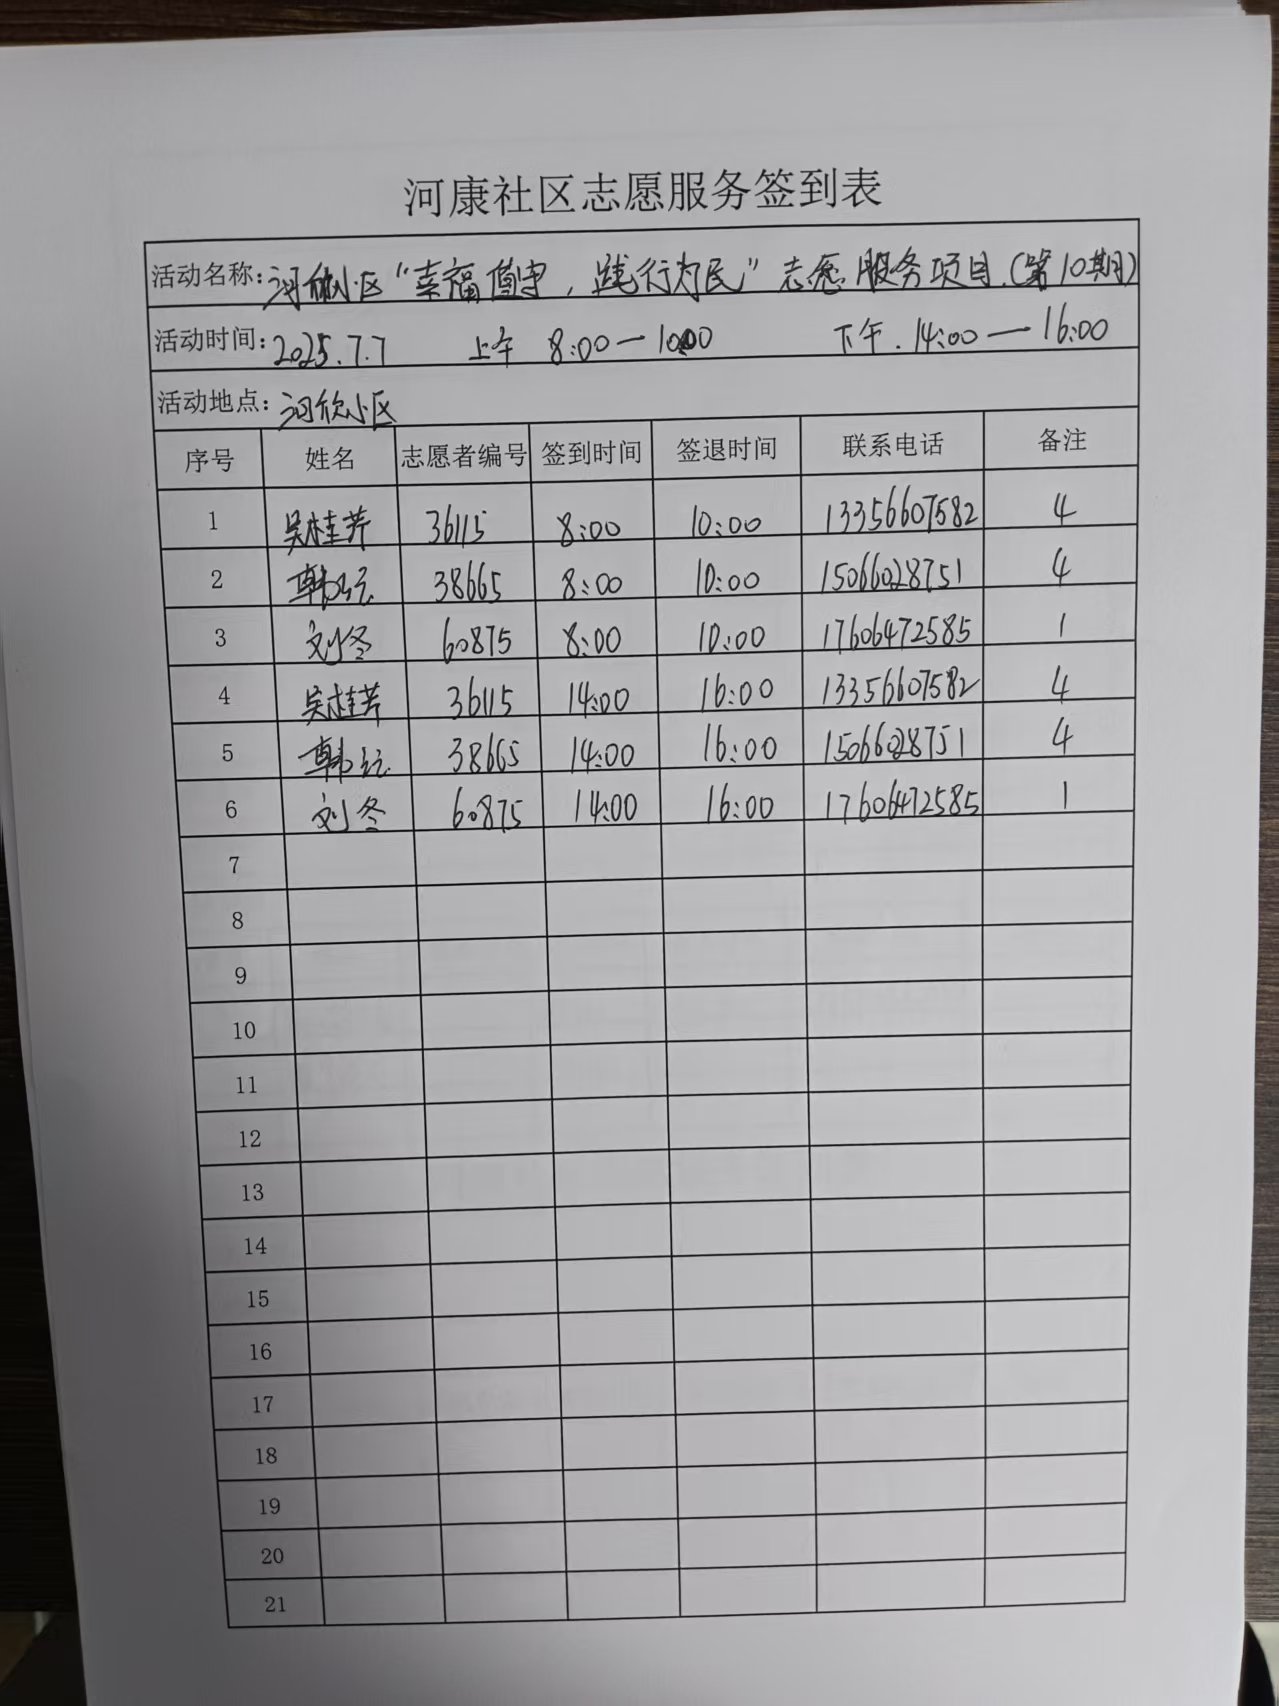 河康社区志愿服务签到表
活动名称：河欣小区“幸福值守，践行为民”志愿服务项目.（第10期）
活动时间：2025.7.7 上午 8:00—10:00 下午.14:00—16:00
活动地点：河欣小区
序号 姓名 志愿者编号 签到时间 签退时间 联系电话 备注
1 吴桂芹 36115 8:00 10:00 13356607582 4
2 韩 38665 8:00 10:00 15066028751 4
3 刘冬 60875 8:00 10:00 17606472585 1
4 吴桂芹 36115 14:00 16:00 13356607582 4
5 韩 38665 14:00 16:00 15066028751 4
6 刘冬 60875 14:00 16:00 17606472585 1
7
8
9
10
11
12
13
14
15
16
17
18
19
20
21